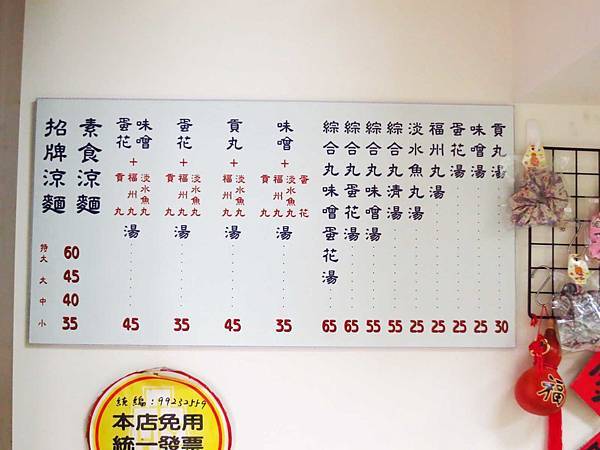 貢丸湯 30
味噌湯 25
蛋花湯 25
福州丸湯 25
淡水魚丸湯 25
綜合丸清湯 55
綜合丸味噌湯 55
綜合丸蛋花湯 65
綜合丸味噌蛋花湯 65
味噌+
蛋花
淡水魚丸
福州丸
貢丸
湯 35
貢丸+
淡水魚丸
福州丸
湯 45
蛋花+
淡水魚丸
福州丸
貢丸
湯 35
味噌
蛋花+
淡水魚丸
福州丸
貢丸
湯 45
素食涼麵
招牌涼麵
特大 60
大 45
中 40
小 35
統編:99232559
本店免用
統一發票
福